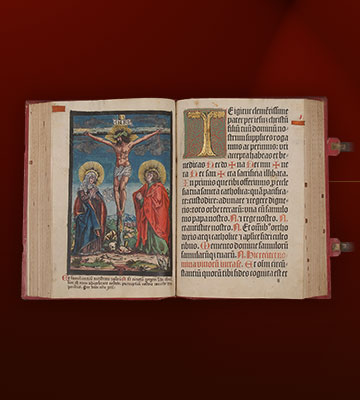 TE igitur clemētissime
pater per iesū christū
filiū tuū dominū no-
strum supplices roga
mus ac petimus: vti
accepta habeas et be-
nedicas Hec do✠na Hec mu✠ne
ra Hec san✠cta sacrificia illibata.
Inprimis que tibi offerimus ecclesia
tua sancta catholica: quā pacifica-
re: custodire: adunare: et regere digne-
ris: toto orbe terrarū: vna cū famulo
papa nostro. N. et rege nostro. N. et
antistite nostro. N. Et ortho-
catholice et apostolice fidei
cultoribus. Memento domine famulorū
famularūq tuarū. N. Hic recitet no-
mina viuorū intra se. Et circū-
stantiū quorū tibi fides cognita est et